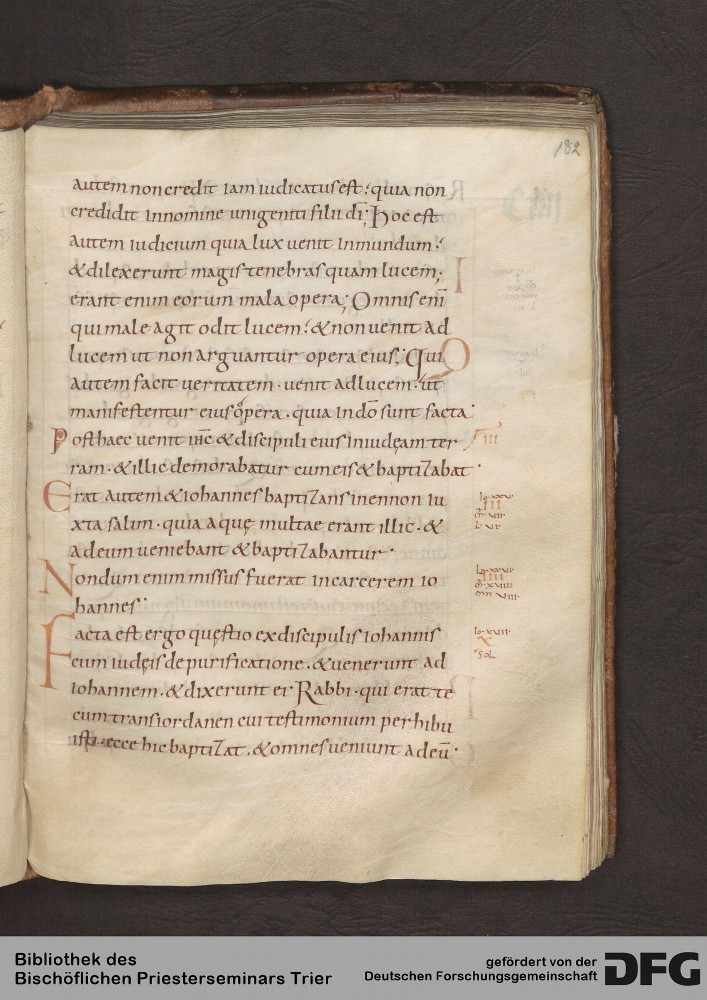 182
autem non credit iam iudicatus est; quia non
credidit in nomine unigeniti filii dī; Hoc est
autem iudicium quia lux uenit in mundum;
& dilexerunt magis tenebras quam lucem;
erant enim eorum mala opera; Omnis enī
qui male agit odit lucem; & non uenit ad
lucem ut non arguantur opera eius; Qui
autem facit ueritatem · uenit ad lucem · ut
manifestentur eius opera · quia in dō sunt facta
Post haec uenit ihc & discipuli eius in iudęam ter
ram · & illic demorabatur cum eis & baptizabat ·
Erat autem & iohannes baptizans in ennon iu
xta salim · quia aquę multae erant illic · &
adueniebant & baptizabantur ·
Nondum enim missus fuerat in carcerem io
hannes
Facta est ergo quęstio ex discipulis iohannis
cum iudęis de purificatione · & uenerunt ad
iohannem · & dixerunt ei Rabbi · qui erat te
cum trans iordanen cui testimonium perhibu
isti · ecce hic baptizat · & omnes ueniunt ad eū ·
III
Io · xxv
III
Io · xxvi
IIII
Io · xxvii
X
Sol
Bibliothek des
Bischöflichen Priesterseminars Trier
gefördert von der
Deutschen Forschungsgemeinschaft
DFG